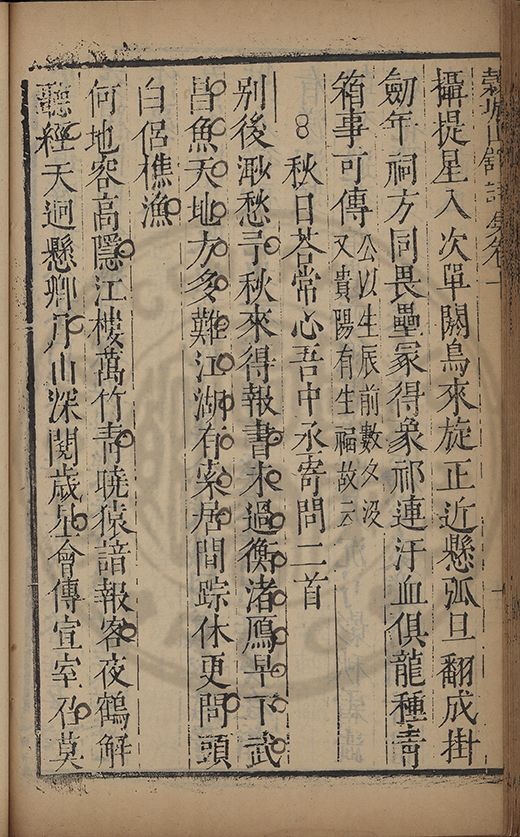 穀城山館詩
攝提星入次單閼鳥來旋正近懸弧旦翻成掛
劒年祠方同畏壘冢得象祁連汗血俱龍種青
箱事可傳公以生辰前數夕沒
又貴陽有生祠故云
秋日荅常心吾中丞寄問二首
別後渺愁予秋來得報書未過衡渚鴈早下武
昌魚天地方多難江湖有索居間踪休更問頭
白侶樵漁
何地容高隱江樓萬竹青曉猿諳報客夜鶴解
聽經天迥懸卿月山深閱歲星會傳宣室召莫